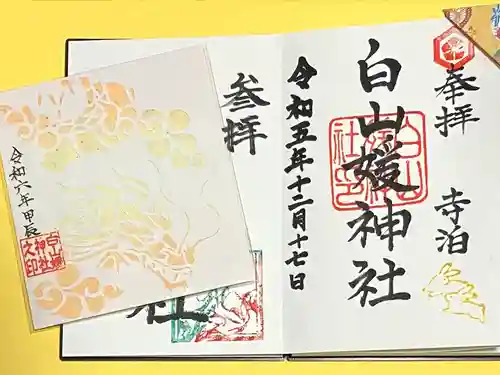 奉拝
寺泊
白山媛神社
令和五年十二月十七日
参拝
社
令和六年甲辰